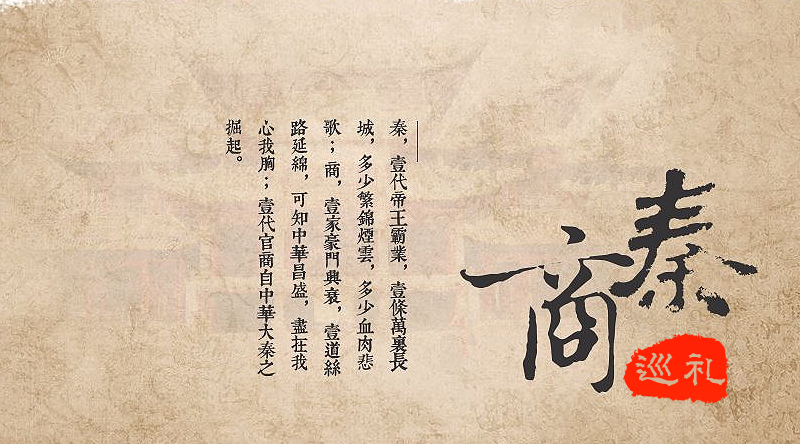 秦商
巡礼
秦，壹代帝王霸業，壹條萬裏長
城，多少繁錦煙雲，多少血肉悲
歌；商，壹家豪門興衰，壹道絲
路延綿，可知中華昌盛，盡在我
心我胸；壹代官商自中華大秦之
掘起。